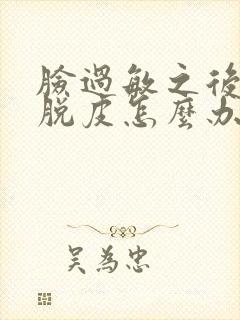 臉過敏之後
脫皮怎麼办
吴為忠